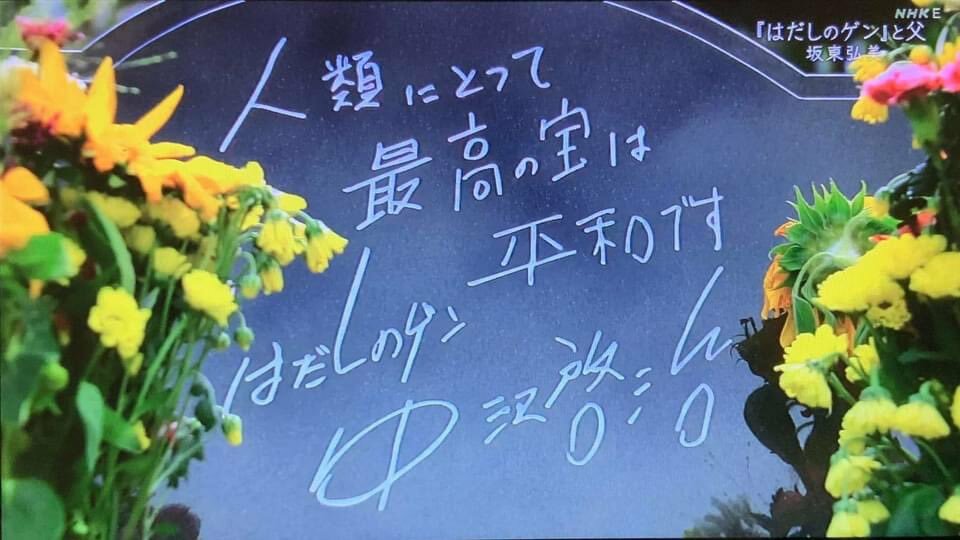 NHKE
『はだしのゲン』と父
坂東弘美
人類にとって
最高の宝は
平和です
はだしのゲン
中沢啓治